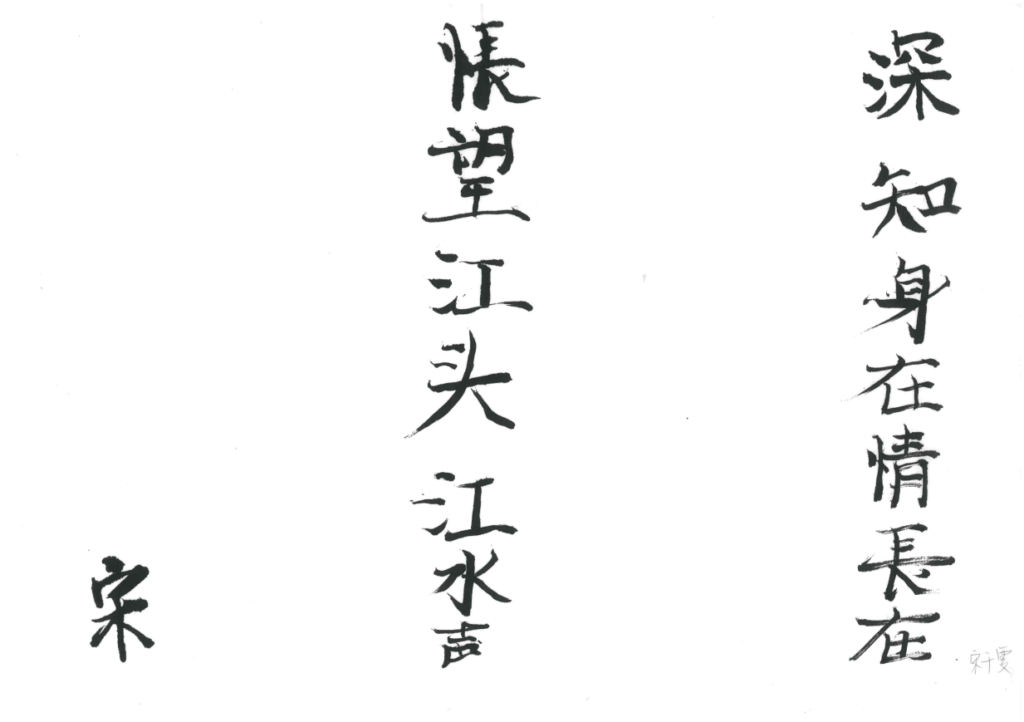 深知身在情長在
悵望江头江水声
宋